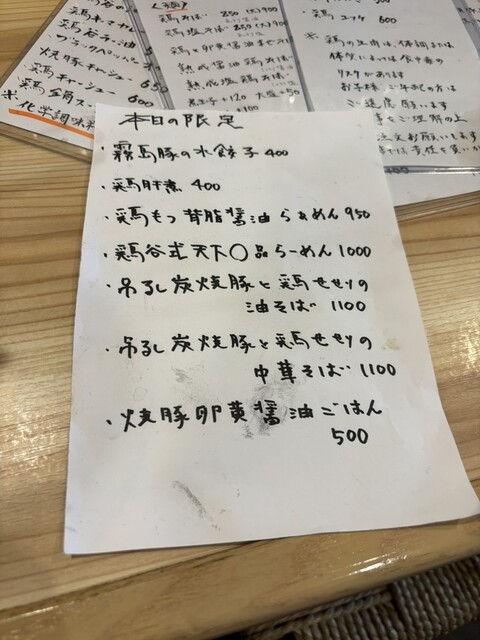 本日の限定
・霧島豚の水餃子 400
・鶏肝煮 400
・鶏もつ背脂醤油らぁめん 950
・鶏谷式天下〇品らーめん 1000
・吊るし炭焼豚と鶏せせりの
油そば 1100
・吊るし炭焼豚と鶏せせりの
中華そば 1100
・焼豚卵黄醤油ごはん
500
鶏谷ラー油
焼豚チャーシュー
鶏チャーシュー
600
※化学調味料
鶏そば 850
鶏塩そば 850
熟成醤油鶏そば
熟成塩鶏そば
煮玉子+120 大盛+50
+100
鶏ユッケ 600
※鶏の生肉は、体調または
リスクがあります
ご遠慮願います